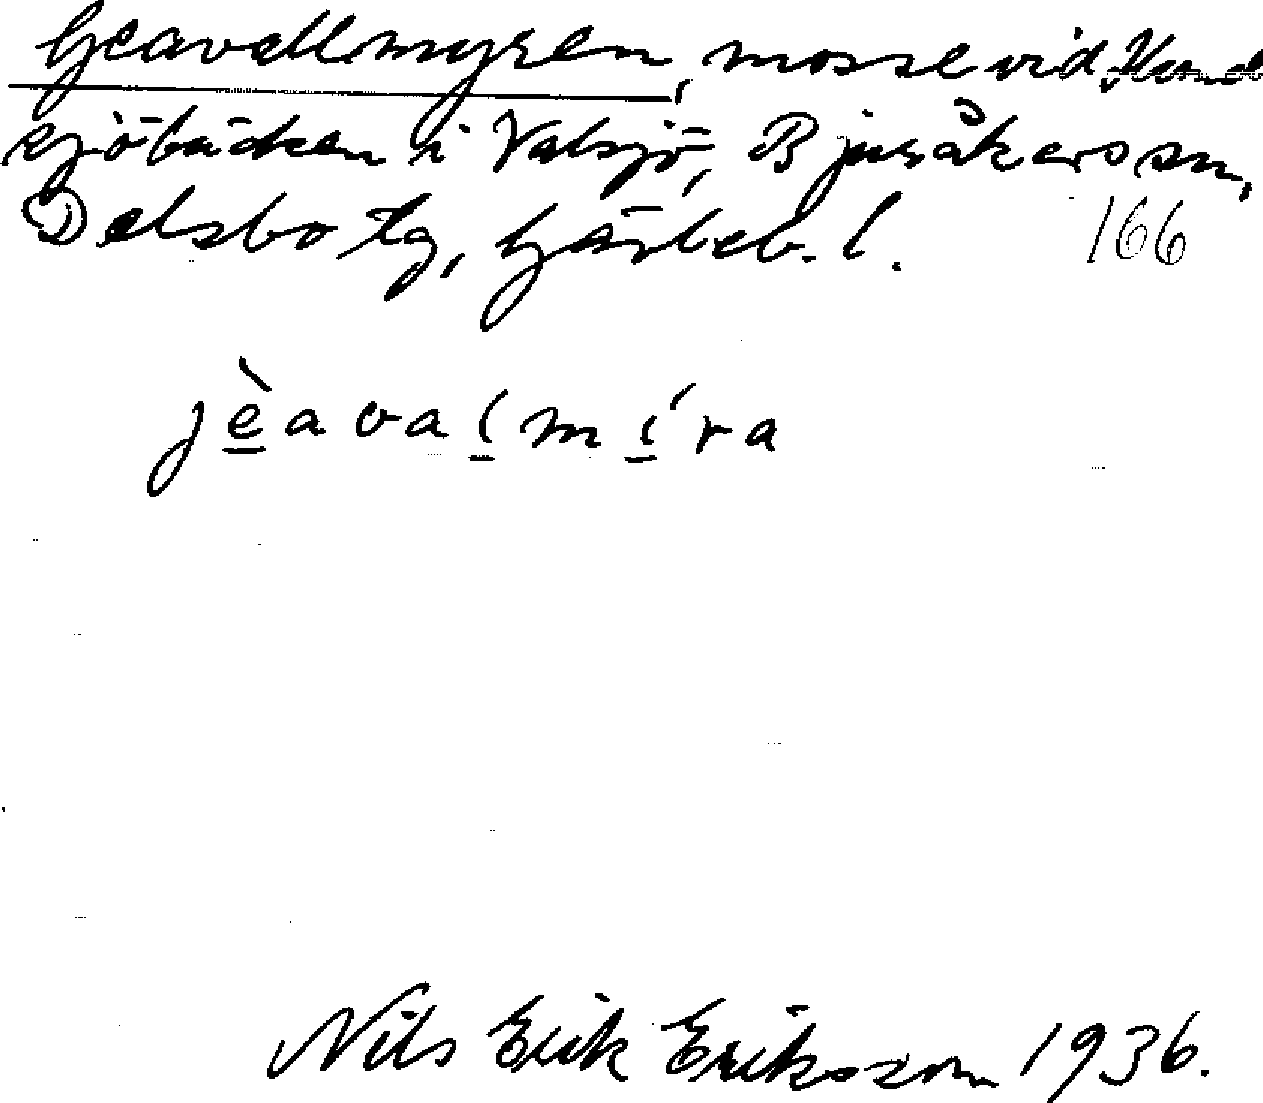 Geavallmyren, mosse vid Hund
sjöbäcken i Valsjö, Bjuråkers sn,
Delsbo tg, Gävleb. l. 166
jèavalmíra
Nils Erik Eriksson 1936.